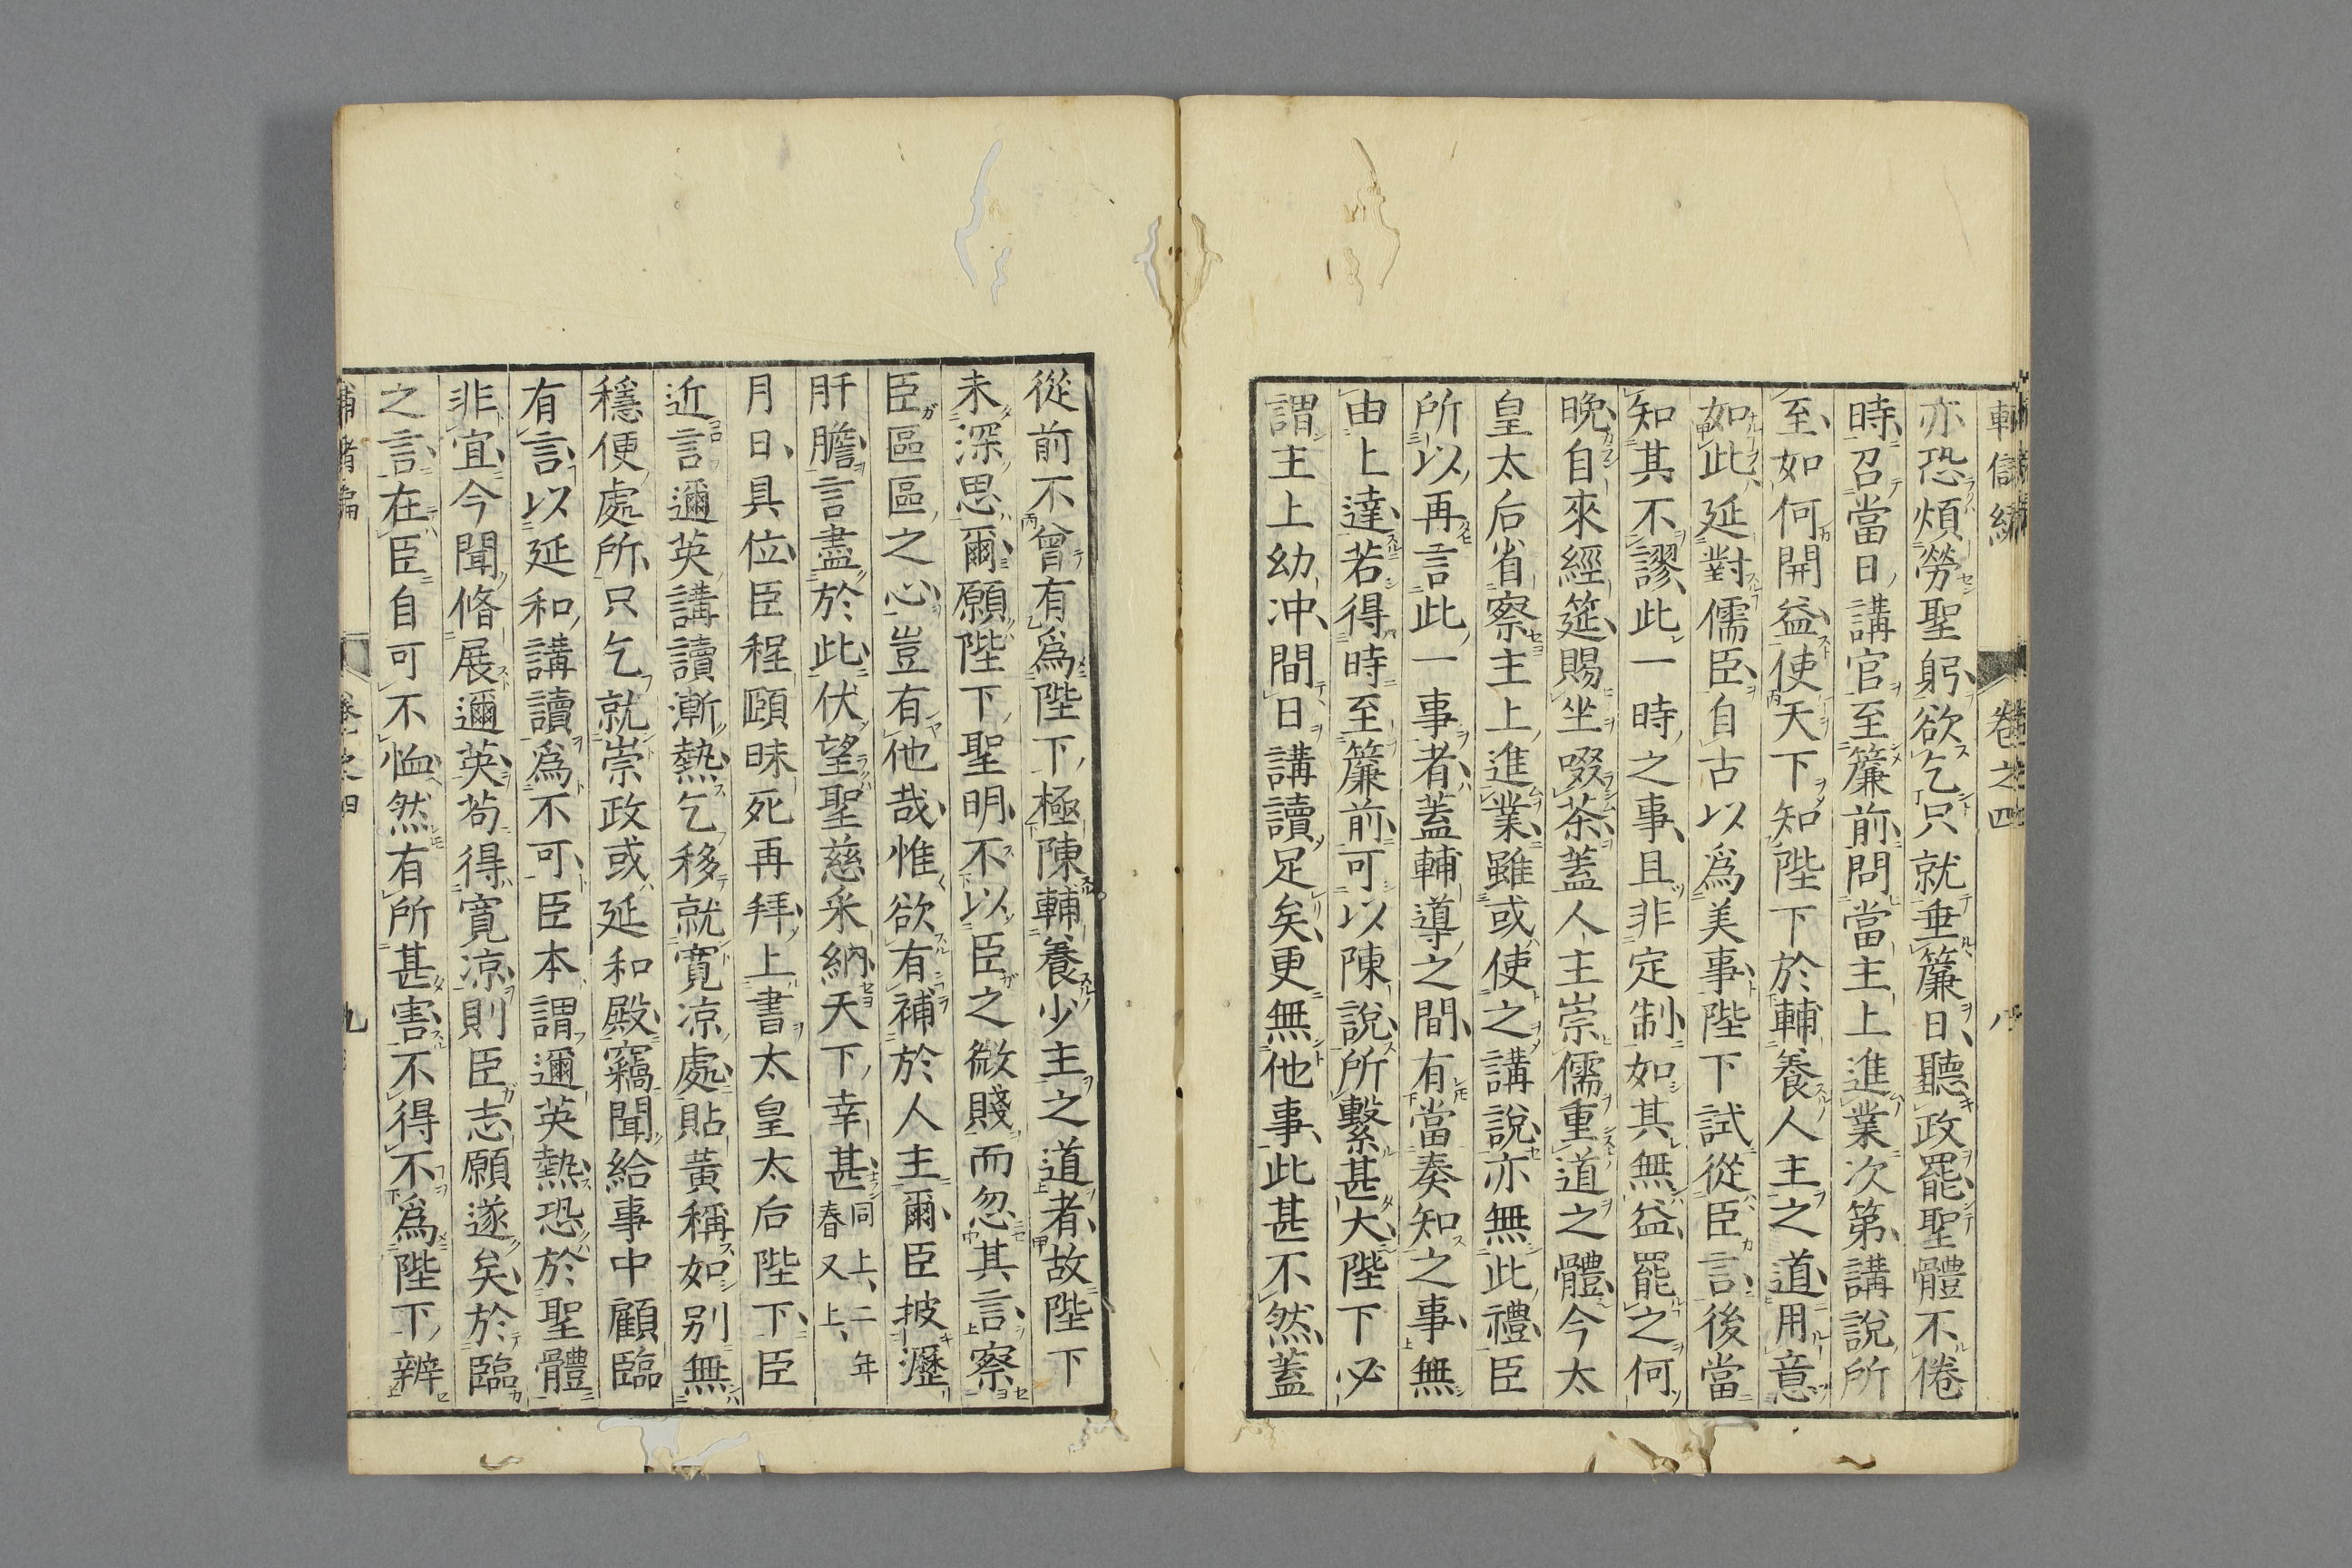 亦恐煩勞聖躬欲乞只就垂簾日聽政罷聖體不倦
時召當日講官至簾前問當主上進業次第講說所
至如何開益使天下知陛下於輔養人主之道用意
如此延對儒臣自古以爲美事陛下試從臣言後當
知其不謬此一時之事且非定制如其無益罷之何
晩自來經筵賜坐啜茶蓋人主崇儒重道之體今太
皇太后省察主上進業雖或使之講說亦無此禮臣
所以再言此一事者蓋輔導之間有當奏知之事無
由上達若得時至簾前可以陳說所繫甚大陛下必
謂主上幼冲間日講讀足矣更無他事此甚不然蓋
從前不曾有爲陛下極陳輔養少主之道者故陛下
未深思爾願陛下聖明不以臣之微賤而忽其言察
臣區區之心豈有他哉惟欲有補於人主爾臣披瀝
肝膽言盡於此伏望聖慈采納天下幸甚同上、二年
春又上、
月日具位臣程頤昧死再拜上書太皇太后陛下臣
近言邇英講讀漸熱乞移就寬凉處貼黃稱如別無
穩便處所只乞就崇政或延和殿竊聞給事中顧臨
有言以延和講讀爲不可臣本謂邇英熱恐於聖體
非宜今聞脩展邇英苟得寬凉則臣志願遂矣於臨
之言在臣自可不恤然有所甚害不得不爲陛下辨
卷之四 九